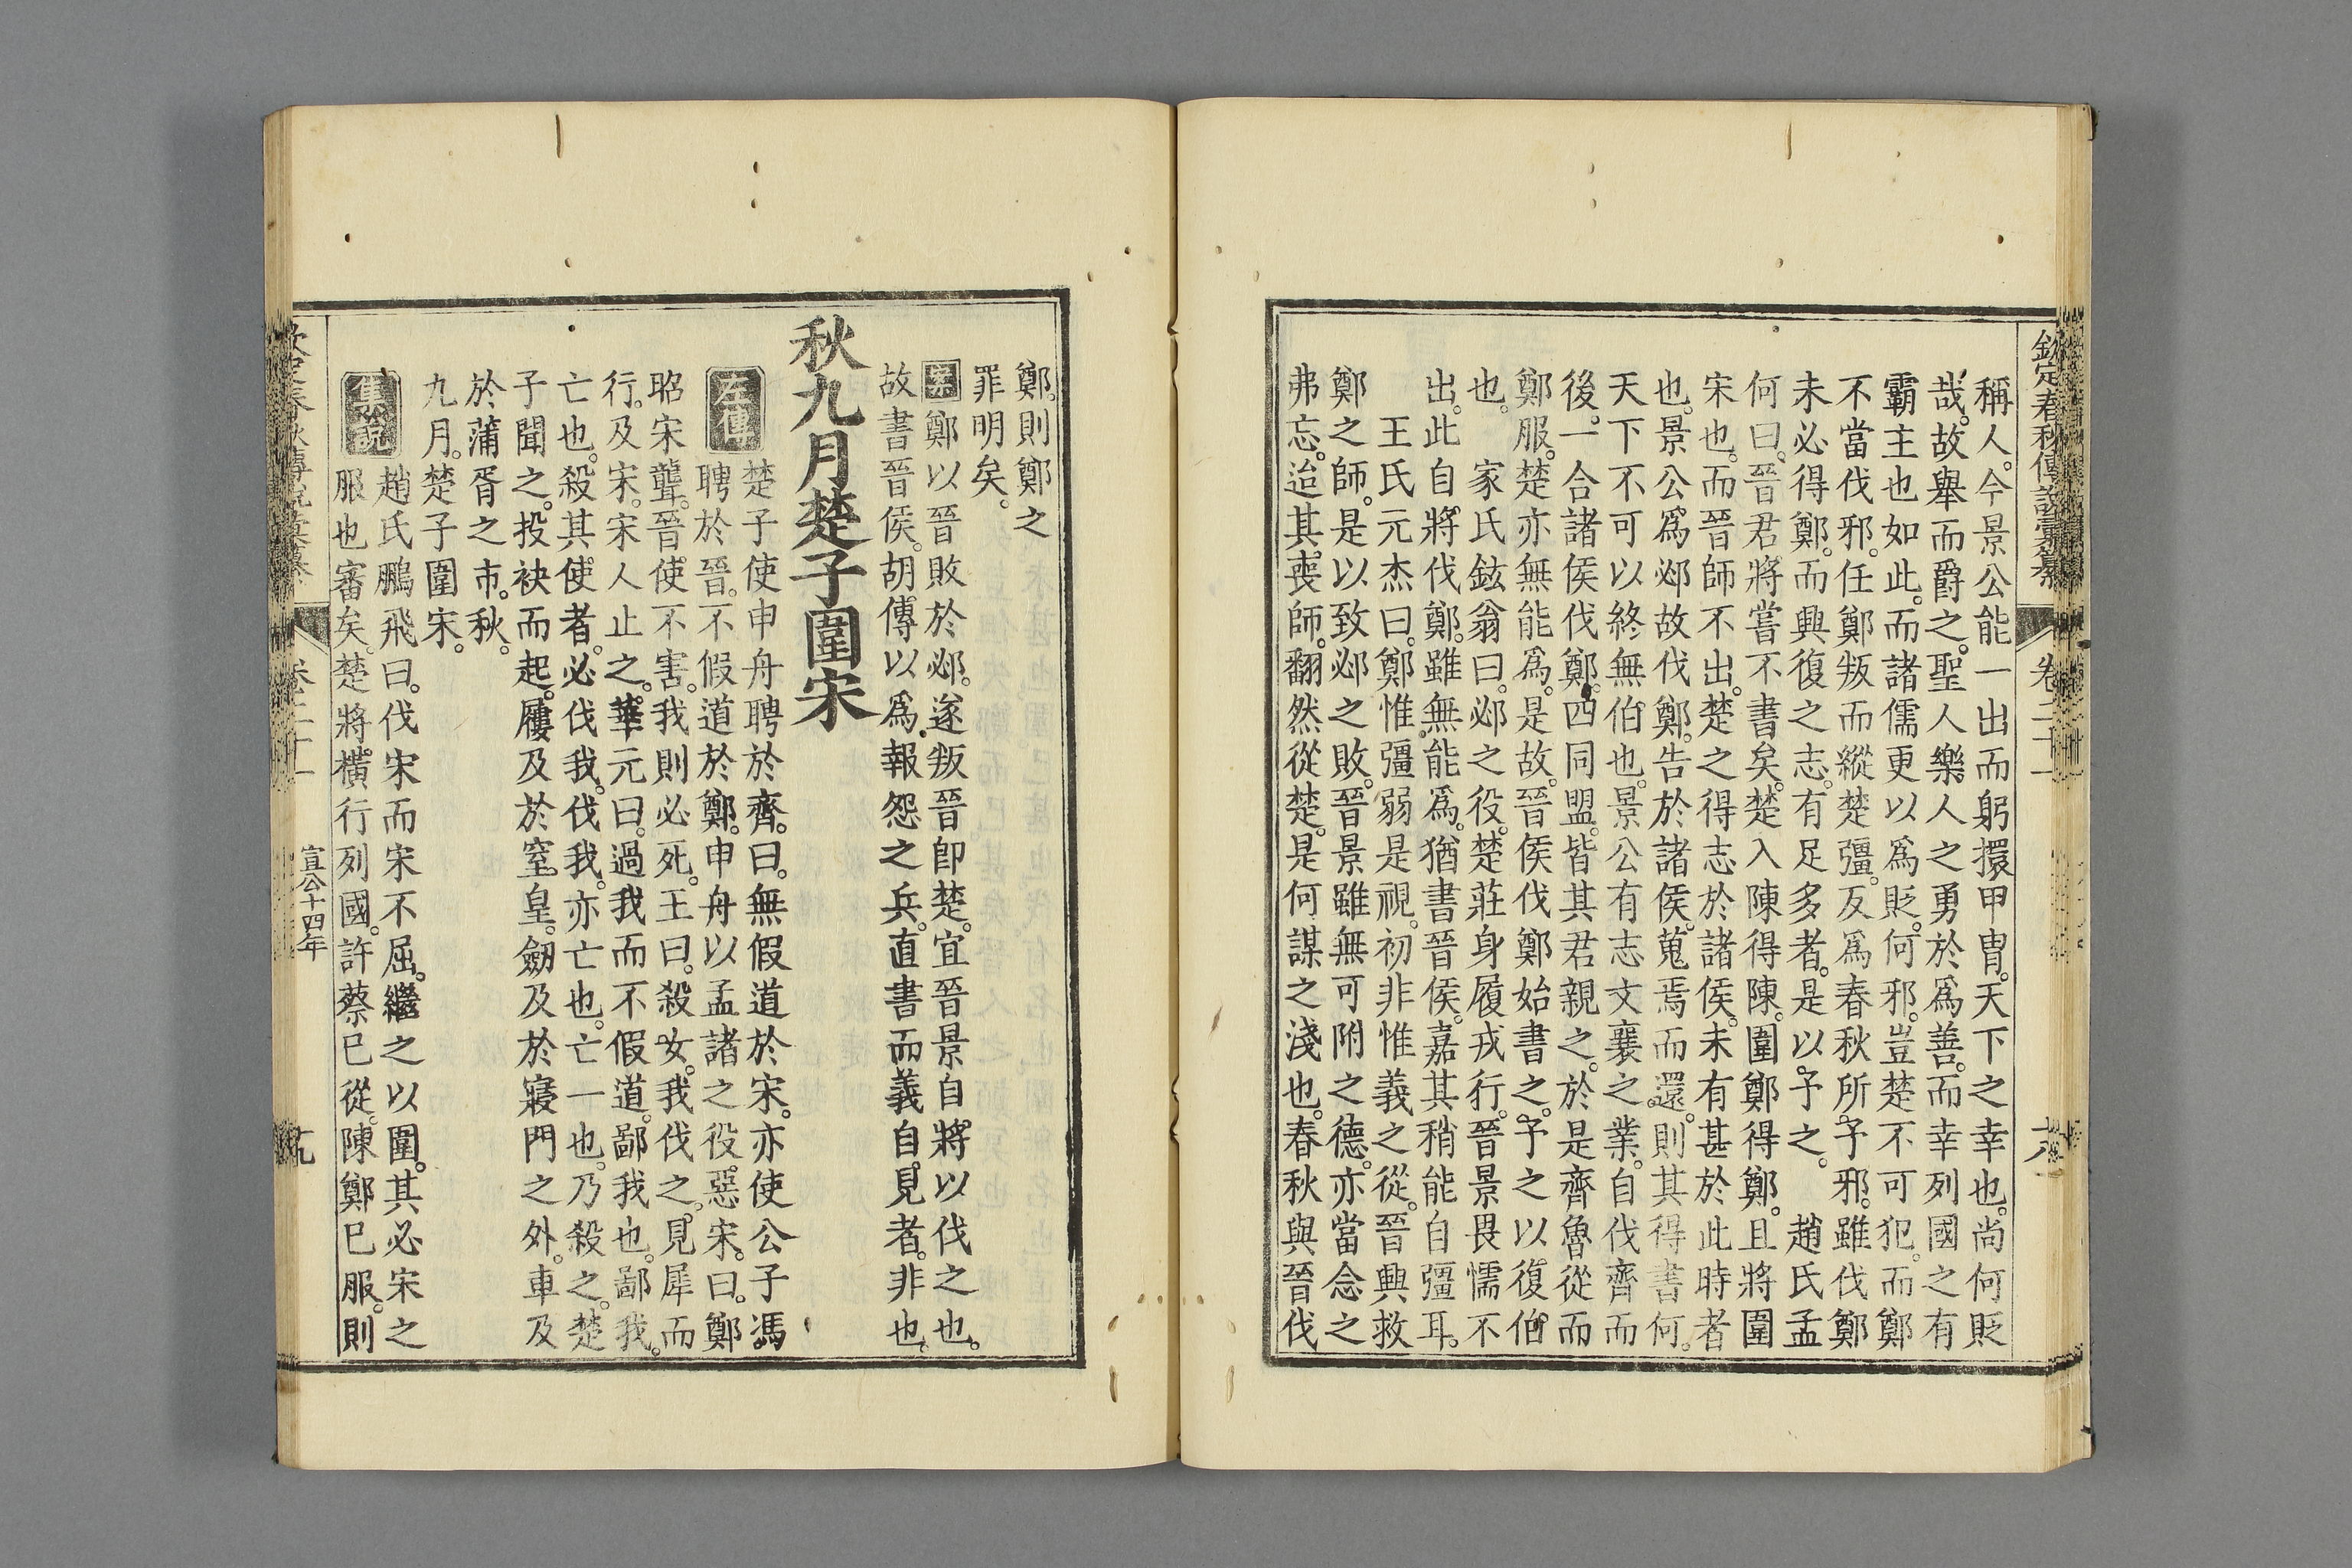 欽定春秋傳說彙纂
卷二十一
稱人。今景公能一出而躬擐甲胄。天下之幸也。尚何貶
哉。故舉而爵之。聖人樂人之勇於爲善。而幸列國之有
霸主也如此。而諸儒更以爲貶。何邪。豈楚不可犯。而鄭
不當伐邪。任鄭叛而縱楚彊。反爲春秋所予邪。雖伐鄭
未必得鄭。而興復之志。有足多者。是以予之。 趙氏孟
何曰。晉君將嘗不書矣。楚入陳得陳。圍鄭得鄭。且將圍
宋也。而晉師不出。楚之得志於諸侯。未有甚於此時者
也。景公爲邲故伐鄭。告於諸侯。蒐焉而還。則其得書何。
天下不可以終無伯也。景公有志文襄之業。自伐齊而
後。一合諸侯伐鄭。四同盟。皆其君親之。於是齊魯從而
鄭服。楚亦無能爲。是故。晉侯伐鄭始書之。予之以復伯
也。 家氏鉉翁曰。邲之役。楚莊身履戎行。晉景畏懦不
出。此自將伐鄭。雖無能爲。猶書晉侯。嘉其稍能自彊耳。
王氏元杰曰。鄭惟彊弱是視。初非惟義之從。晉興救
鄭之師。是以致邲之敗。晉景雖無可附之德。亦當念之
弗忘。迨其喪師。翻然從楚。是何謀之淺也。春秋與晉伐
鄭。則鄭之
罪明矣。
案鄭以晉敗於邲。遂叛晉卽楚。宜晉景自將以伐之也。
故書晉侯。胡傳以爲報怨之兵。直書而義自見者。非也。
秋九月楚子圍宋
左傳 楚子使申舟聘於齊。曰。無假道於宋。亦使公子馮
聘於晉。不假道於鄭。申舟以孟諸之役。惡宋。曰。鄭
昭宋聾。晉使不害。我則必死。王曰。殺女。我伐之。見犀而
行。及宋。宋人止之。華元曰。過我而不假道。鄙我也。鄙我。
亡也。殺其使者。必伐我。伐我。亦亡也。亡一也。乃殺之。楚
子聞之。投袂而起。屨及於窒皇。劒及於寢門之外。車及
於蒲胥之市。秋。
九月。楚子圍宋。
集說 趙氏鵬飛曰。伐宋而宋不屈。繼之以圍。其必宋之
服也審矣。楚將橫行列國。許蔡巳從。陳鄭巳服。則
欽定春秋傳說彙纂
卷二十一
宣公十四年